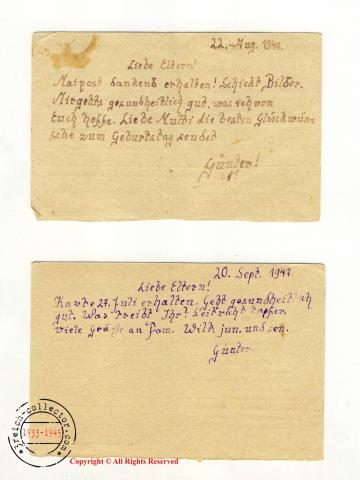 22. Aug. 1947.
Liebe Eltern!
Maipost dankend erhalten! Schickt Bilder.
Mir gehts gesundheitlich gut, was ich von
Euch hoffe. Liebe Mutti die besten Glückwün-
sche zum Geburtstag sendet
Günter!
20. Sept. 1947
Liebe Eltern!
Karte 27. Juli erhalten. Geht gesundheitlich
gut. Was treibt Ihr? Seit recht tapfer.
viele Grüße an Fam. Wilk jun. und sen.
Günter.
3reich-collector.com
1933-1945
Copyright © All Rights Reserved